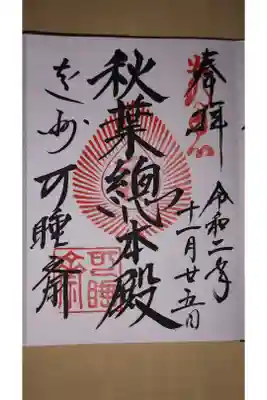 奉拝
令和二年
十一月廿五日
秋葉總本殿
遠州 可睡斎
可睡斎